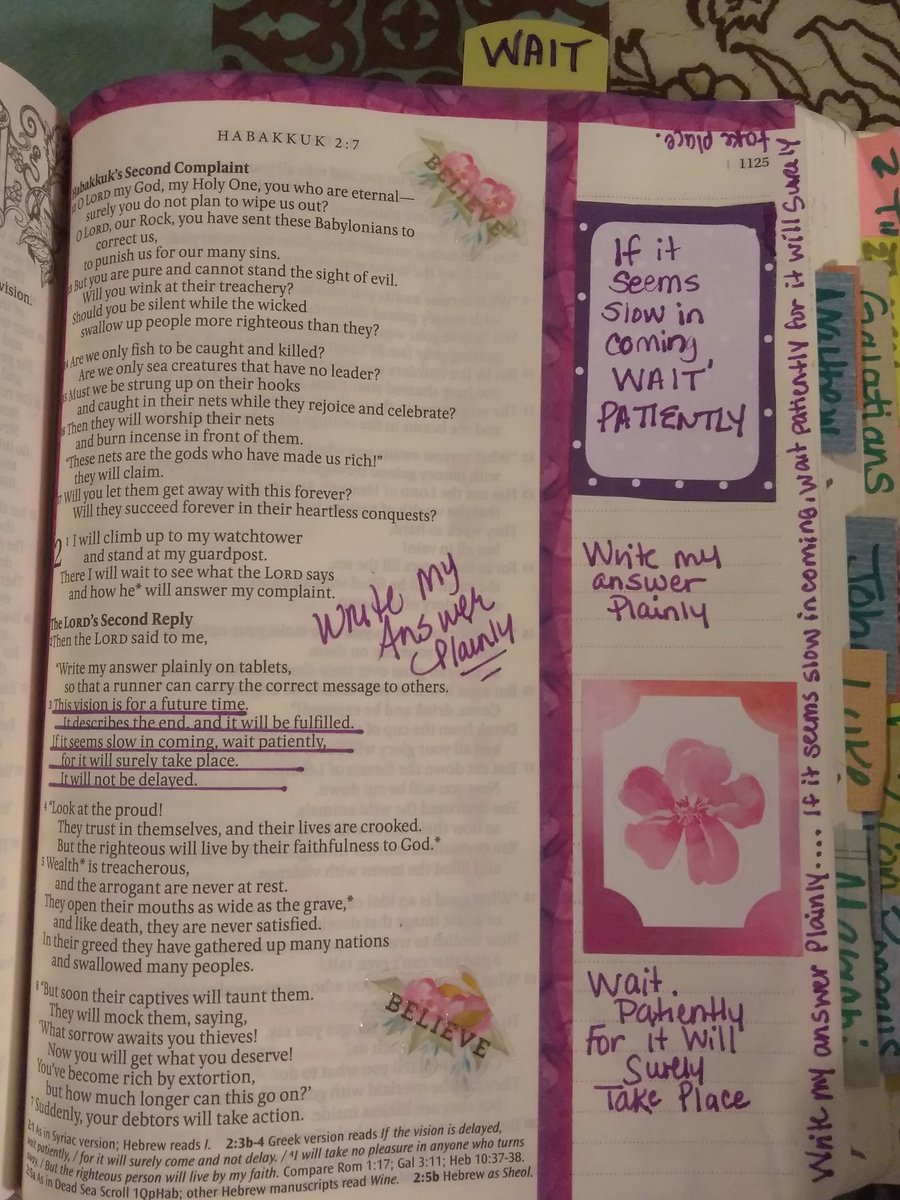 WAIT
vision.
HABAKKUK 2:7
1125
Habakkuk's Second Complaint
12 O LORD my God, my Holy One, you who are eternal—
surely you do not plan to wipe us out?
O LORD, our Rock, you have sent these Babylonians to
correct us,
to punish us for our many sins.
13 But you are pure and cannot stand the sight of evil.
Will you wink at their treachery?
Should you be silent while the wicked
swallow up people more righteous than they?
14 Are we only fish to be caught and killed?
Are we only sea creatures that have no leader?
15 Must we be strung up on their hooks
and caught in their nets while they rejoice and celebrate?
16 Then they will worship their nets
and burn incense in front of them.
"These nets are the gods who have made us rich!"
they will claim.
17 Will you let them get away with this forever?
Will they succeed forever in their heartless conquests?
2 1 I will climb up to my watchtower
and stand at my guardpost.
There I will wait to see what the LORD says
and how he* will answer my complaint.
The LORD's Second Reply
2 Then the LORD said to me,
"Write my answer plainly on tablets,
so that a runner can carry the correct message to others.
3 This vision is for a future time.
It describes the end, and it will be fulfilled.
If it seems slow in coming, wait patiently,
for it will surely take place.
It will not be delayed.
4 "Look at the proud!
They trust in themselves, and their lives are crooked.
But the righteous will live by their faithfulness to God.*
5 Wealth* is treacherous,
and the arrogant are never at rest.
They open their mouths as wide as the grave,*
and like death, they are never satisfied.
In their greed they have gathered up many nations
and swallowed many peoples.
6 "But soon their captives will taunt them.
They will mock them, saying,
'What sorrow awaits you thieves!
Now you will get what you deserve!
You've become rich by extortion,
but how much longer can this go on?'
7 Suddenly, your debtors will take action.
2:1 As in Syriac version; Hebrew reads I. 2:3b-4 Greek version reads If the vision is delayed,
wait patiently, / for it will surely come and not delay. / 4I will take no pleasure in anyone who turns
away. / But the righteous person will live by my faith. Compare Rom 1:17; Gal 3:11; Heb 10:37-38.
2:5a As in Dead Sea Scroll 1QpHab; other Hebrew manuscripts read Wine. 2:5b Hebrew as Sheol.
BELIEVE
Write my
Answer
Plainly
BELIEVE
If it
Seems
Slow in
Coming
WAIT
PATIENTLY
Write my
answer
Plainly
Wait.
Patiently
For it Will
Surely
Take Place
Write my answer Plainly.... If it seems slow in coming, wait patiently for it will surely
take place.
2 Ti
Galatians
Matthew
John
Luke
Malachi